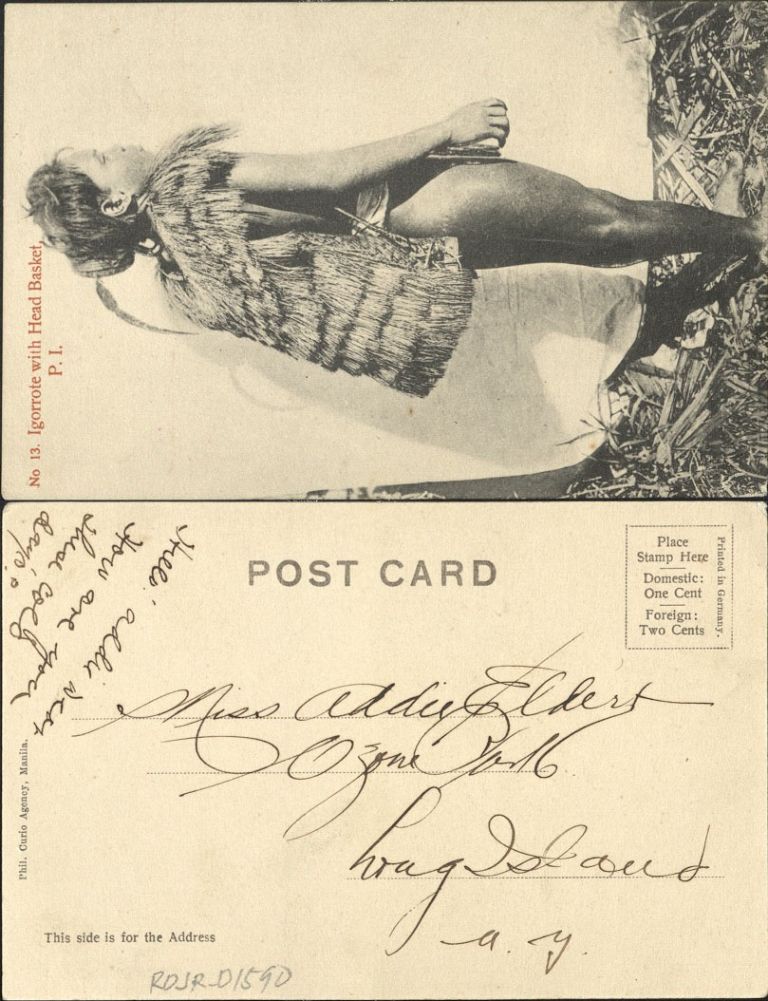 No 13. Igorrote with Head Basket,
P. I.
POST CARD
Place
Stamp Here
Domestic:
One Cent
Foreign:
Two Cents
Printed in Germany.
Hello addie dear
How are you
these cold
days?
Miss Addie Eldert
Ozone Park
Long Island
N. Y.
Phil. Curio Agency, Manila.
This side is for the Address
RDJR-D159D